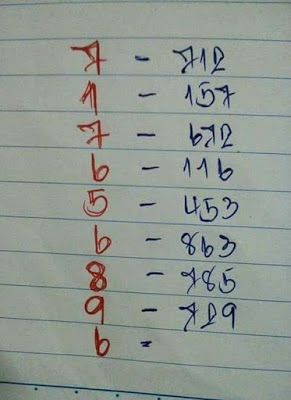 7 - 712
1 - 157
7 - 672
6 - 116
5 - 453
6 - 863
8 - 785
9 -
6 =